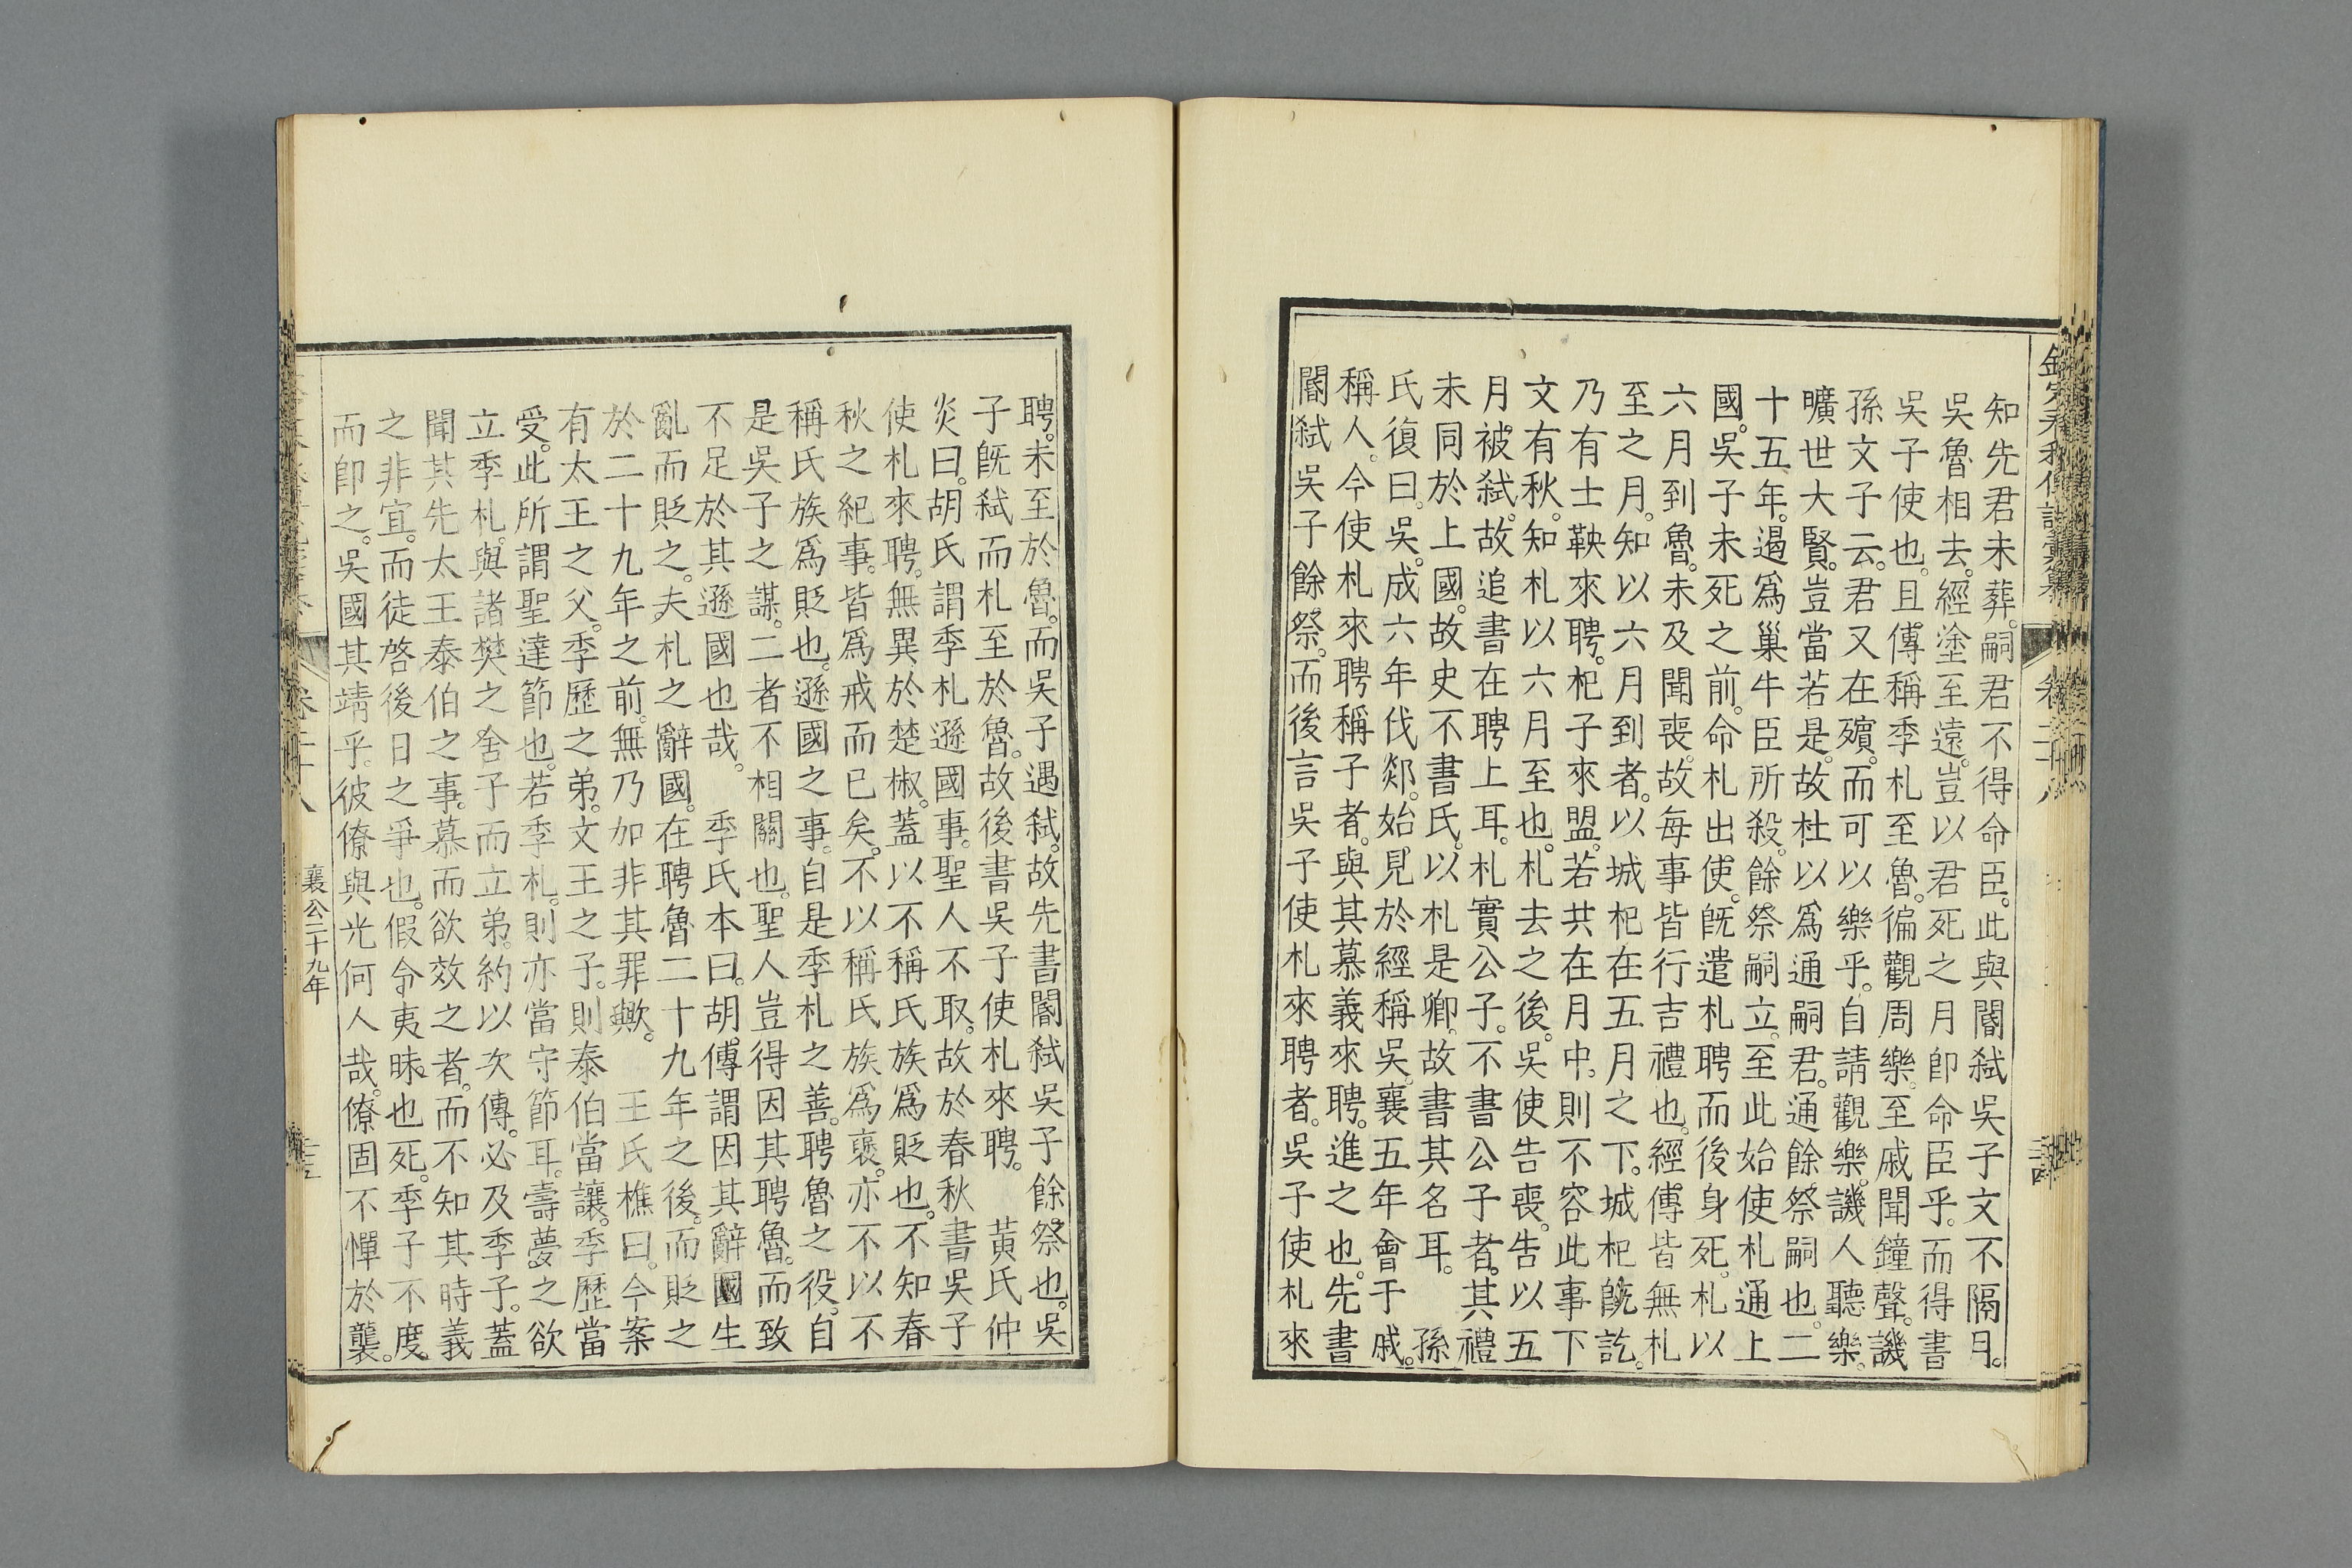 知先君未葬。嗣君不得命臣。此與閽弒吳子文不隔月。
吳魯相去。經塗至遠。豈以君死之月卽命臣乎。而得書
吳子使也。且傳稱季札至魯。徧觀周樂。至戚聞鐘聲。譏
孫文子云。君又在殯。而可以樂乎。自請觀樂。譏人聽樂。
曠世大賢。豈當若是。故杜以爲通嗣君。通餘祭嗣也。二
十五年。遏爲巢牛臣所殺。餘祭嗣立。至此始使札通上
國。吳子未死之前。命札出使。旣遣札聘而後身死。札以
六月到魯。未及聞喪。故每事皆行吉禮也。經傳皆無札
至之月。知以六月到者。以城杞在五月之下。城杞旣訖。
乃有士鞅來聘。杞子來盟。若共在月中。則不容此事下
文有秋。知札以六月至也。札去之後。吳使告喪。告以五
月被弒。故追書在聘上耳。札實公子。不書公子者。其禮
未同於上國。故史不書氏。以札是卿。故書其名耳。 孫
氏復曰。吳。成六年伐郯。始見於經稱吳。襄五年會于戚。
稱人。今使札來聘稱子者。與其慕義來聘。進之也。先書
閽弒吳子餘祭。而後言吳子使札來聘者。吳子使札來
聘。未至於魯。而吳子遇弒。故先書閽弒吳子餘祭也。吳
子旣弒而札至於魯。故後書吳子使札來聘。 黃氏仲
炎曰。胡氏謂季札遜國事。聖人不取。故於春秋書吳子
使札來聘。無異於楚椒。蓋以不稱氏族爲貶也。不知春
秋之紀事。皆爲戒而已矣。不以稱氏族爲襃。亦不以不
稱氏族爲貶也。遜國之事。自是季札之善。聘魯之役。自
是吳子之謀。二者不相關也。聖人豈得因其聘魯。而致
不足於其遜國也哉。 季氏本曰。胡傳謂因其辭國生
亂而貶之。夫札之辭國。在聘魯二十九年之後。而貶之
於二十九年之前。無乃加非其罪歟。 王氏樵曰。今案
有太王之父。季歷之弟。文王之子。則泰伯當讓。季歷當
受。此所謂聖達節也。若季札。則亦當守節耳。壽夢之欲
立季札。與諸樊之舍子而立弟。約以次傳。必及季子。蓋
聞其先太王泰伯之事。慕而欲效之者。而不知其時義
之非宜。而徒啓後日之爭也。假令夷昧也死。季子不度。
而卽之。吳國其靖乎。彼僚與光何人哉。僚固不憚於襲。
卷二十八
襄公二十九年